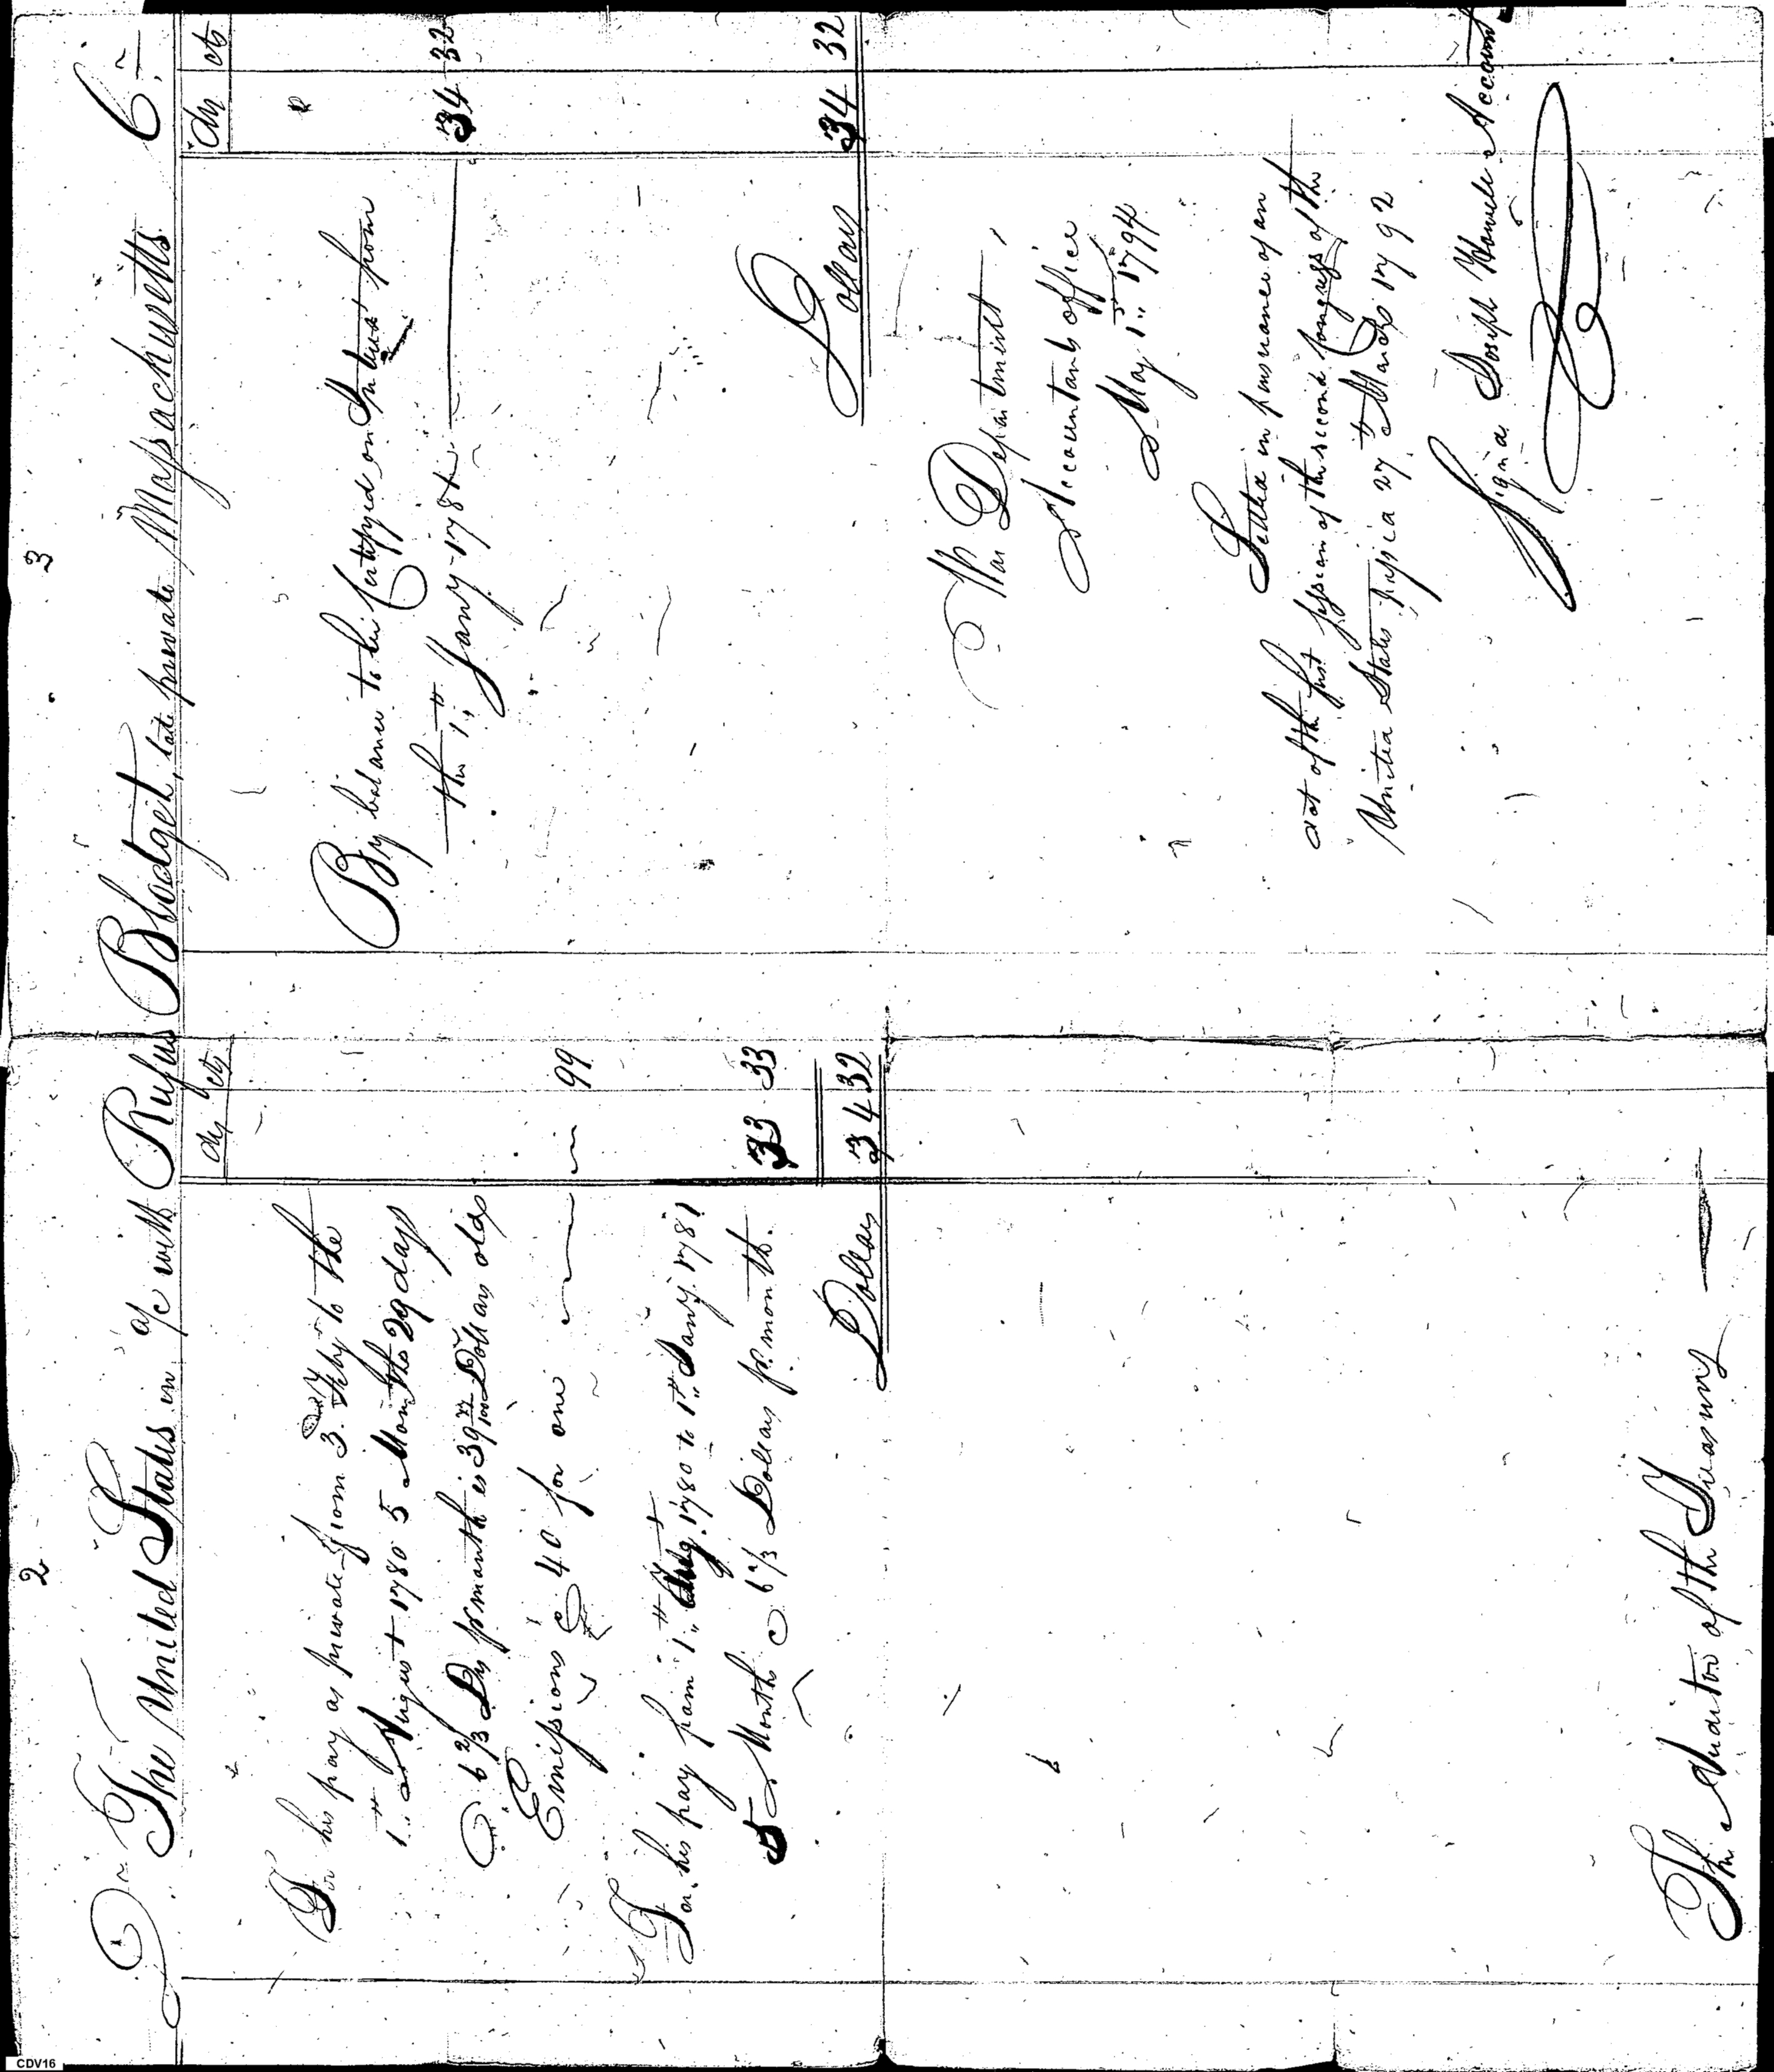 2
Dr The United States in a/c with Rufus
Dls cts
For his pay as private from 3. Feby to the
1st August 1780 5 Months 29 days
@ 6 2/3 Dls pr month is 39 77/100 Dollars old
Emissions @ 40 for one 99
For his pay from 1st Augt. 1780 to 1st Jany. 1781
5 Months @ 6 2/3 Dollars pr. month. 33 33
Dollars 34 32
The Auditor of the Treasury
3
Blodget, late private Massachusetts Cr
Dls cts
By balance to be Certifyed on Interest from
the 1st Jany 1781 34 32
Dollars 34 32
War Department,
Accountants office
May 1st 1794
Settled in pursuance of an
act of the first session of the second Congress of the
United States passed 27th March 1792
Signed Joseph Howell Account
CDV16